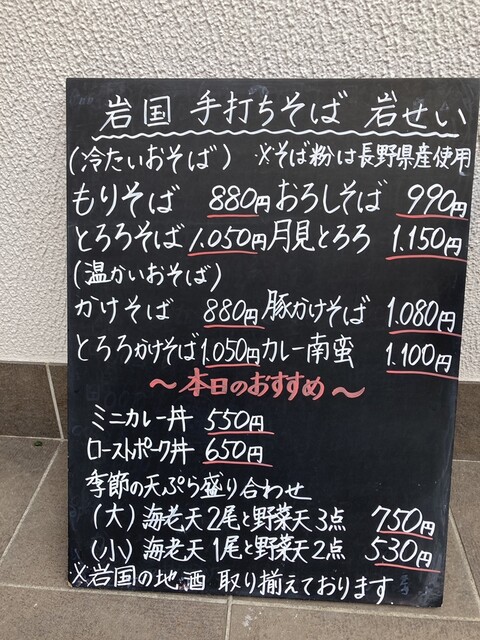 岩国 手打ちそば 岩せい
(冷たいおそば) ※そば粉は長野県産使用
もりそば 880円 おろしそば 990円
とろろそば 1.050円 月見とろろ 1.150円
(温かいおそば)
かけそば 880円 豚かけそば 1.080円
とろろかけそば 1.050円 カレー南蛮 1.100円
〜本日のおすすめ〜
ミニカレー丼 550円
ローストポーク丼 650円
季節の天ぷら盛り合わせ
(大) 海老天2尾と野菜天3点 750円
(小) 海老天1尾と野菜天2点 530円
※岩国の地酒 取り揃えております